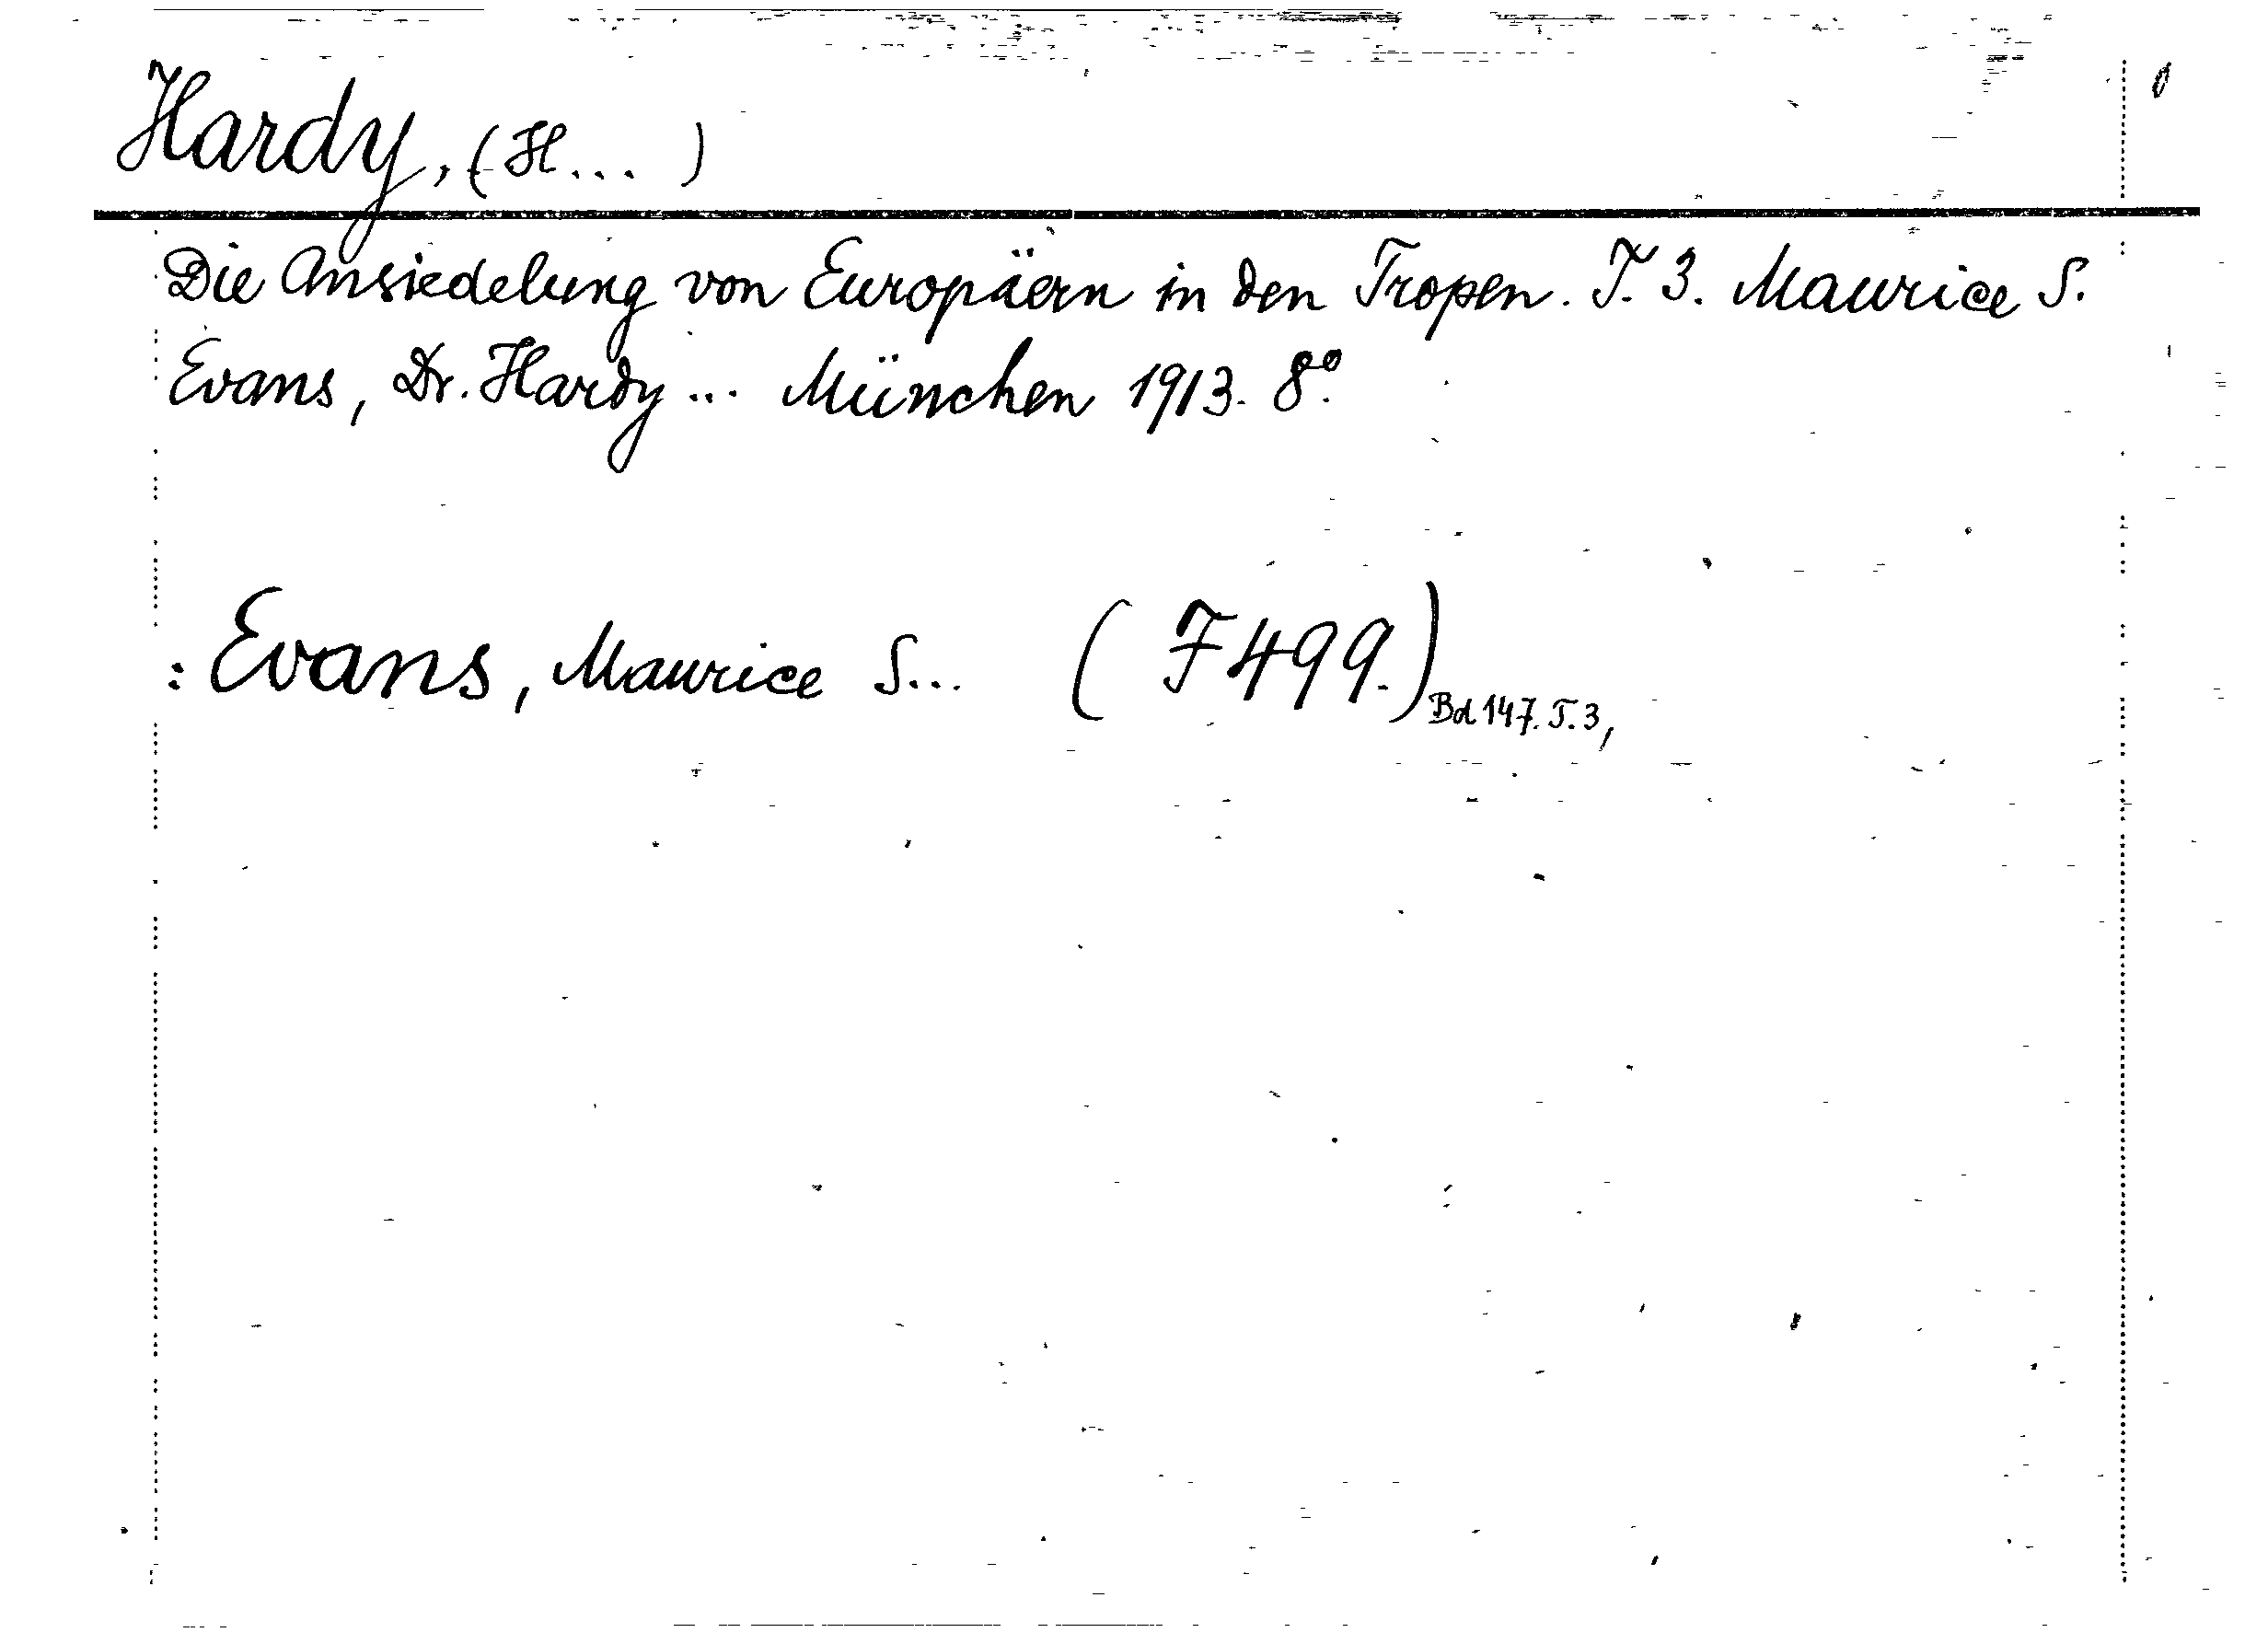 Hardy, (H... )
Die Ansiedelung von Europäern in den Tropen. T. 3. Maurice S.
Evans, Dr. Hardy ... München 1913. 8º.
: Evans, Maurice S... (F 499.) Bd 147. T. 3,